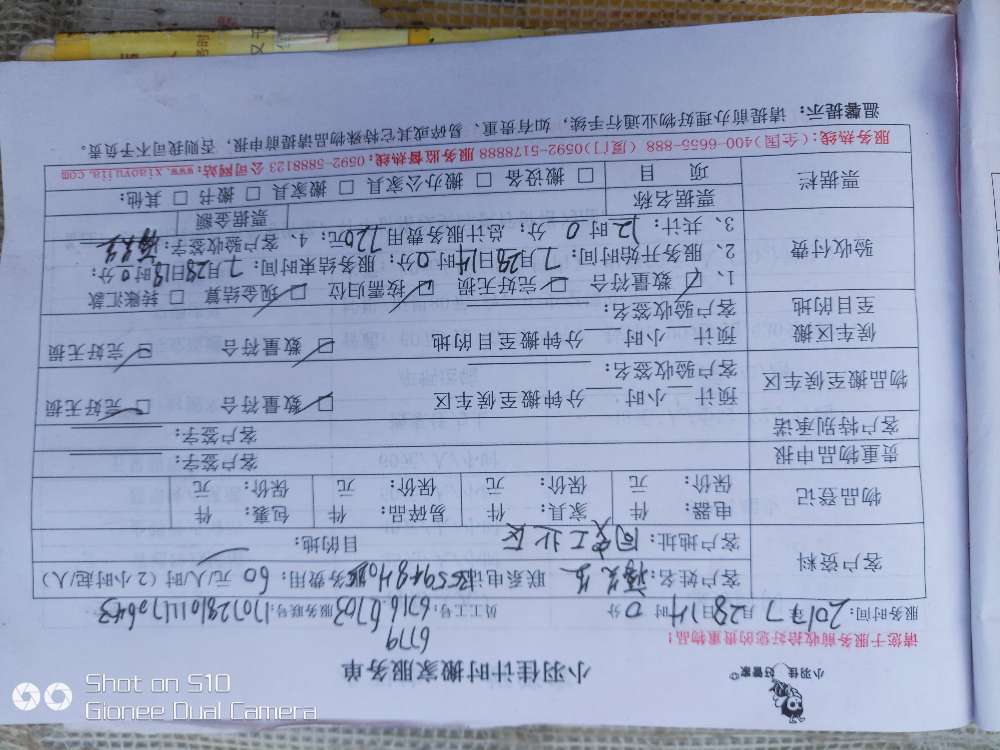 小羽佳 好管家
小羽佳计时搬家服务单
请您于服务前收拾好您的贵重物品!
6779
服务时间: 2017年7月28日14时0分 员工工号: 6716.6703 服务联号:
客户资料 客户姓名: 联系电话: 服务费用: 60元/人/时(2小时起/人)
客户地址: 同安工业区 目的地:
物品登记 电器: 件 家具: 件 易碎品: 件 包裹: 件
保价: 元 保价: 元 保价: 元 保价: 元
贵重物品申报 客户签字:
客户特别承诺 客户签字:
物品搬至候车区 预计 小时 分钟搬至候车区 □ 数量符合 □ 完好无损
客户验收签名:
候车区搬至目的地 预计 小时 分钟搬至目的地 □ 数量符合 □ 完好无损
客户验收签名:
验收付费 1、□ 数量符合 □ 完好无损 □ 按需归位 □ 现金结算 □ 转账汇款
2、服务开始时间: 7月28日14时0分; 服务结束时间: 7月28日18时0分;
3、共计: 12时0分; 总计服务费用720元; 4、客户验收签字:
票据栏 票据名称 票据金额
项目 □ 搬设备 □ 搬办公家具 □ 搬家具 □ 搬书 □ 其他:
服务热线:(全国)400-6655-888 (厦门)0592-5178888 服务监督热线: 0592-5888123 公司网站: www.xiaoyujia.com
温馨提示: 请提前办理好物业通行手续, 如有贵重、易碎或其它特殊物品请提前申报, 否则我司不予负责。
Shot on S10
Gionee Dual Camera